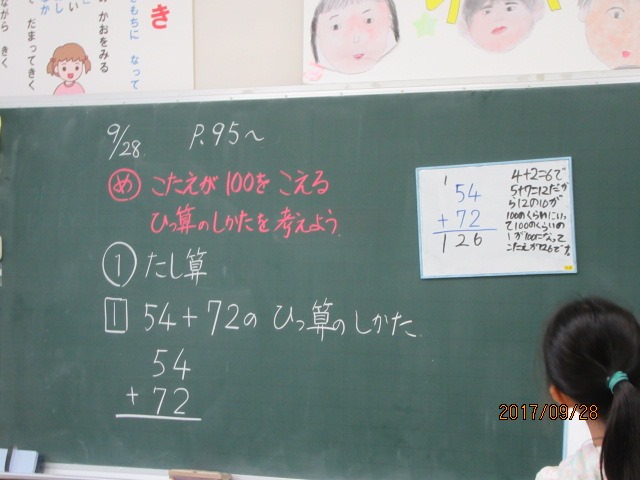 き
きもちに なって
かおをみる
だまってきく
ながら きく
9/28 P.95~
め こたえが100を こえる
ひっ算のしかたを考えよう。
① たし算
1 54+72の ひっ算のしかた
54
+72
1
54
+72
126
4+2=6で
5+7=12だが
ら12の10が
100のくらいにいっ
て100のくらいの
1が100になって
こたえが126です。
2017/09/28